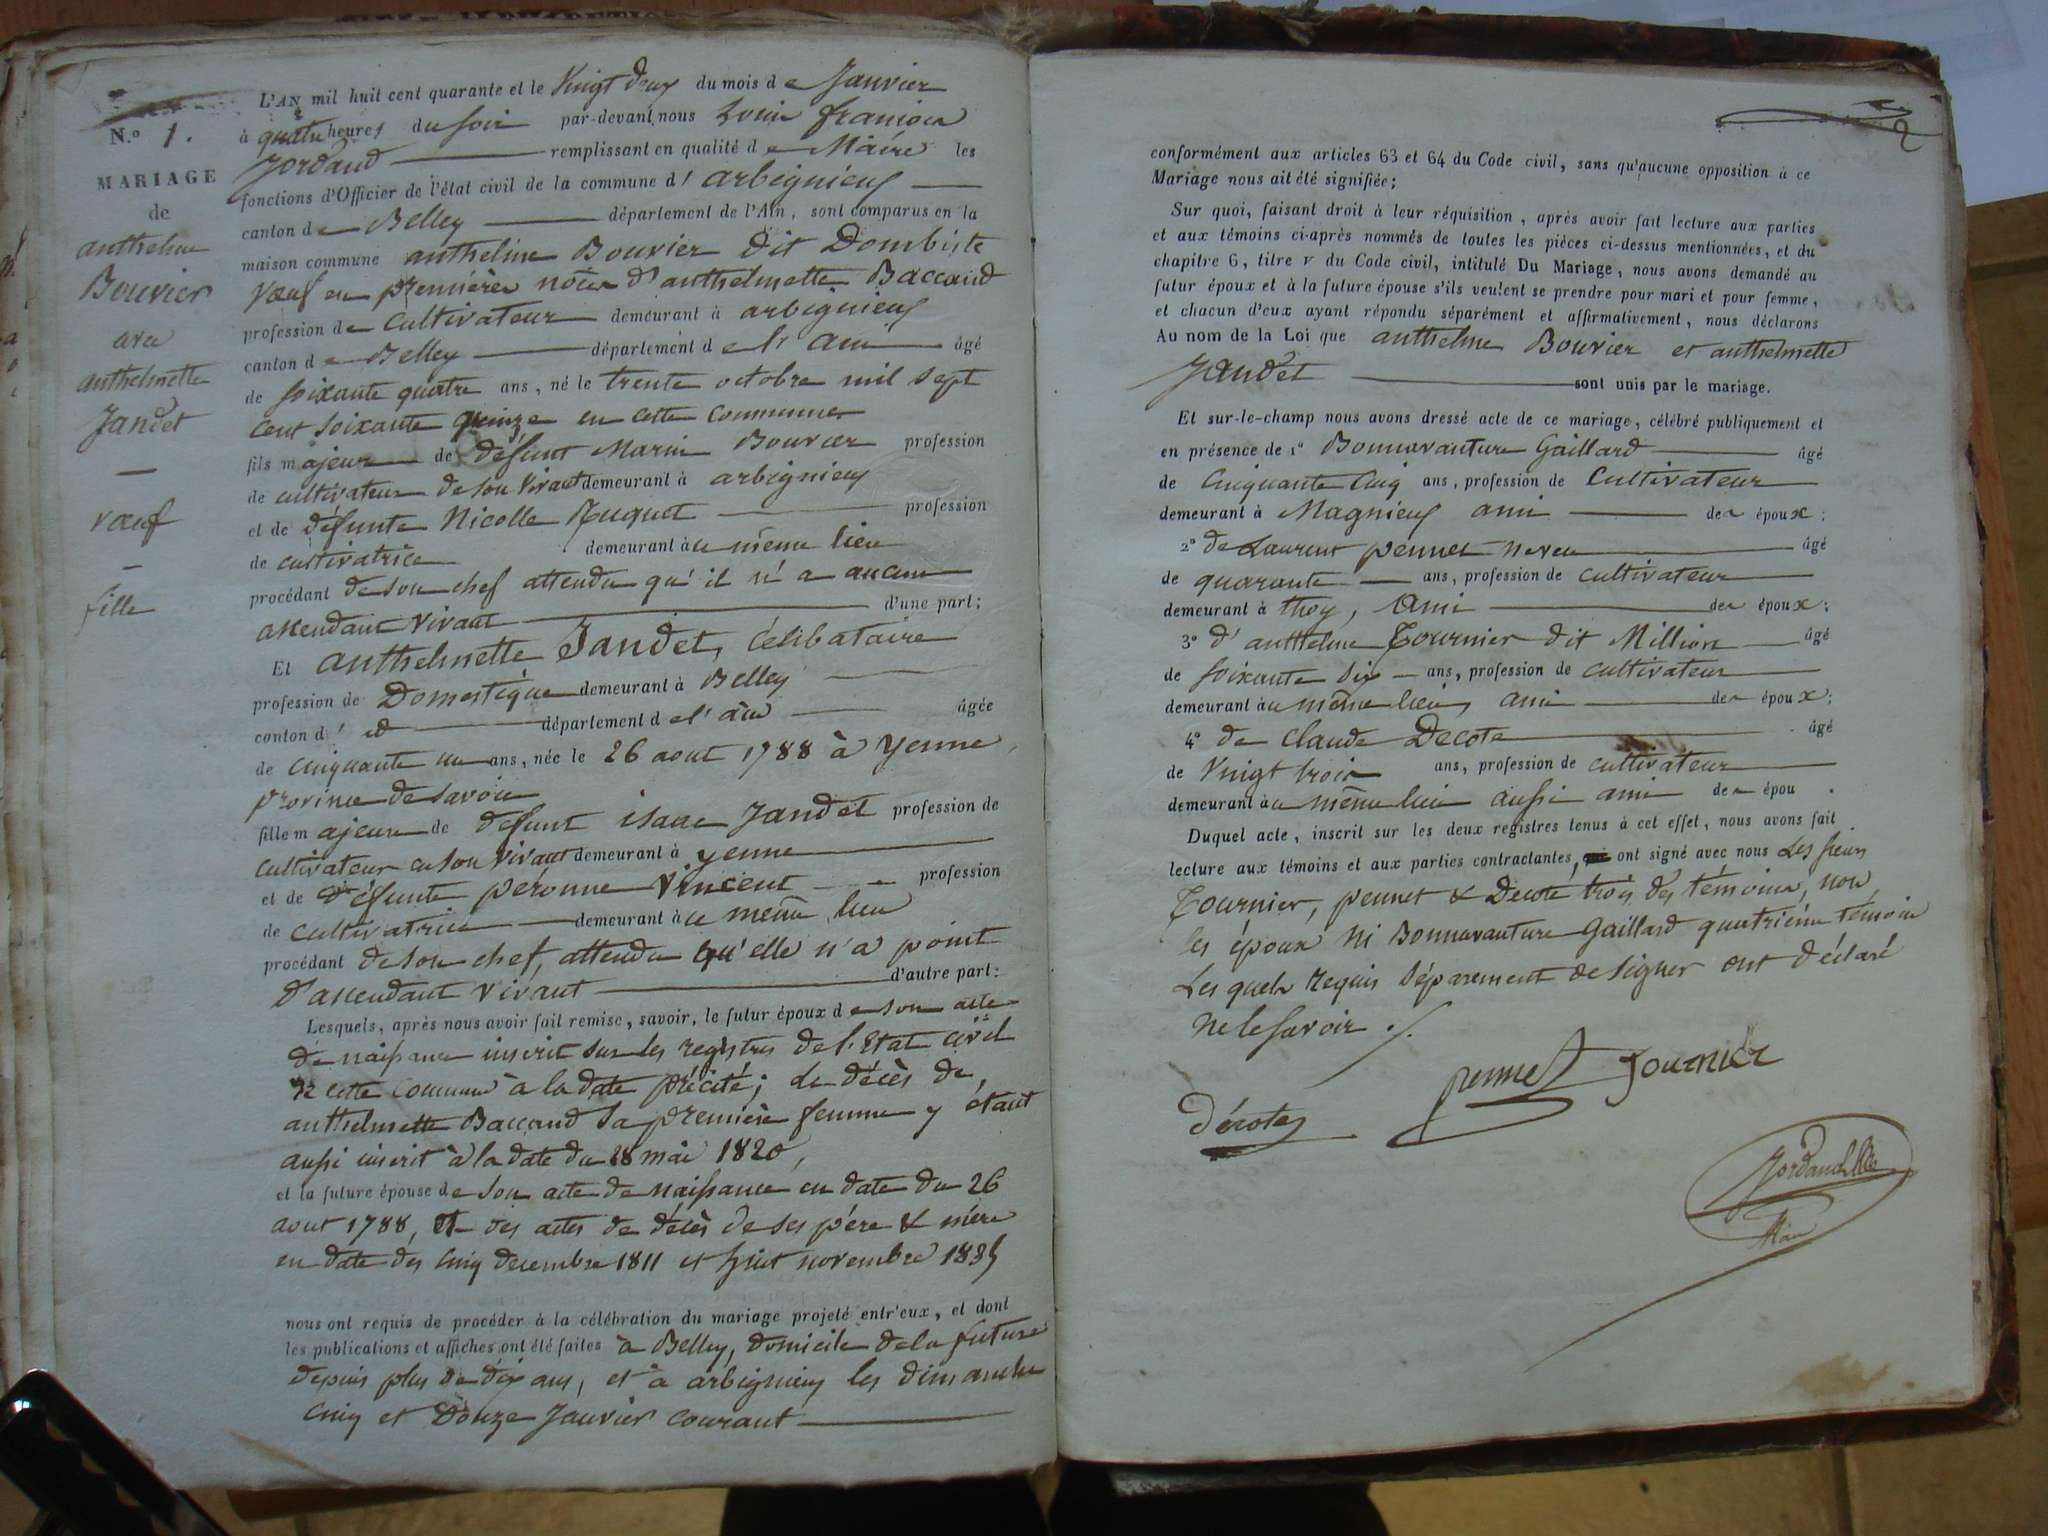 N.o 1.
MARIAGE
de
anthelme
Bouvier
avec
anthelmette
Jandet
vœuf
fille
L'AN mil huit cent quarante et le Vingt deux du mois de Janvier
à quatre heures du soir par-devant nous Louis françois
Jordand remplissant en qualité de Maire les
fonctions d'Officier de l'état civil de la commune d' arbignieux
canton de Belley département de l'Ain, sont comparus en la
maison commune anthelme Bouvier dit Dombiste
vœuf en premières noces d'anthelmette Baccand
profession de cultivateur demeurant à arbignieux
canton de Belley département de l' ain âgé
de soixante quatre ans, né le trente octobre mil sept
cent soixante quinze en cette commune
fils majeur de défunt Marin Bouvier profession
de cultivateur de son vivant demeurant à arbignieux
et de défunte Nicolle profession
de cultivatrice demeurant au même lieu
procédant de son chef attendu qu'il n'a aucun
ascendant vivant d'une part;
Et anthelmette Jandet, célibataire
profession de Domestique demeurant à Belley
conton d' id département de l'ain âgée
de cinquante un ans, née le 26 aout 1788 à Yenne,
province de savoie
fille majeure de défunt isaac Jandet profession de
cultivateur en son vivant demeurant à yenne
et de défunte péronne Vincent profession
de cultivatrice demeurant au même lieu
procédant de son chef, attendu qu'elle n'a point
d'ascendant vivant d'autre part:
Lesquels, après nous avoir fait remise, savoir, le futur époux de son acte
de naissance inscrit sur les registres de l'Etat civil
de cette commune à la date précité; de décès de
anthelmette Baccand sa première femme y étant
aussi inscrit à la date du 18 mai 1820,
et la future épouse de son acte de naissance en date du 26
aout 1788, et des actes de décès de ses père & mère
en date des cinq decembre 1811 et huit novembre 1835
nous ont requis de procéder à la célébration du mariage projeté entr'eux, et dont
les publications et affiches ont été faites à Belley, domicile de la future
depuis plus de dix ans, et à arbignieux les dimanche
cinq et Douze Janvier courant
2
conformément aux articles 63 et 64 du Code civil, sans qu'aucune opposition à ce
Mariage nous ait été signifiée;
Sur quoi, faisant droit à leur réquisition, après avoir fait lecture aux parties
et aux témoins ci-après nommés de toutes les pièces ci-dessus mentionnées, et du
chapitre 6, titre v du Code civil, intitulé Du Mariage, nous avons demandé au
futur époux et à la future épouse s'ils veulent se prendre pour mari et pour femme,
et chacun d'eux ayant répondu séparément et affirmativement, nous déclarons
Au nom de la Loi que anthelme Bouvier et anthelmette
Jandet sont unis par le mariage.
Et sur-le-champ nous avons dressé acte de ce mariage, célébré publiquement et
en présence de 1o Bonnavanture Gaillard âgé
de Cinquante Cinq ans, profession de Cultivateur
demeurant à Magnieux ami des époux;
2o de Laurent pennet neveu âgé
de quarante ans, profession de cultivateur
demeurant à thoy, ami des époux;
3o d'anthelme Tournier dit Million âgé
de soixante six ans, profession de cultivateur
demeurant au même lieu, ami des époux;
4o de Claude Decote âgé
de Vingt trois ans, profession de cultivateur
demeurant au même lieu aussi ami des épou .
Duquel acte, inscrit sur les deux registres tenus à cet effet, nous avons fait
lecture aux témoins et aux parties contractantes, ont signé avec nous Les sieurs
Tournier, pennet & Decote trois des témoins, non
les époux ni Bonnavanture Gaillard quatrième témoin
Lesquels requis séparement de signer ont déclaré
ne le savoir ./.
pennet Tournier
décote
Jordand
Maire